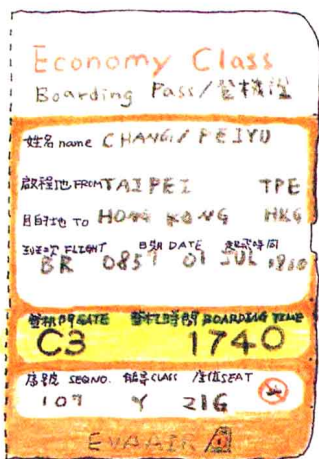 Economy Class
Boarding Pass/登機證
姓名 name CHANG/PEIYU
啟程地 FROM TAIPEI TPE
目的地 TO HONG KONG HKG
FLIGHT 日期 DATE 時間
BR 0857 01 JUL 1810
登機門 GATE 登機時間 BOARDING TIME
C3 1740
序號 SEQNO. CLASS 座位 SEAT
107 Y 21G
EVA AIR